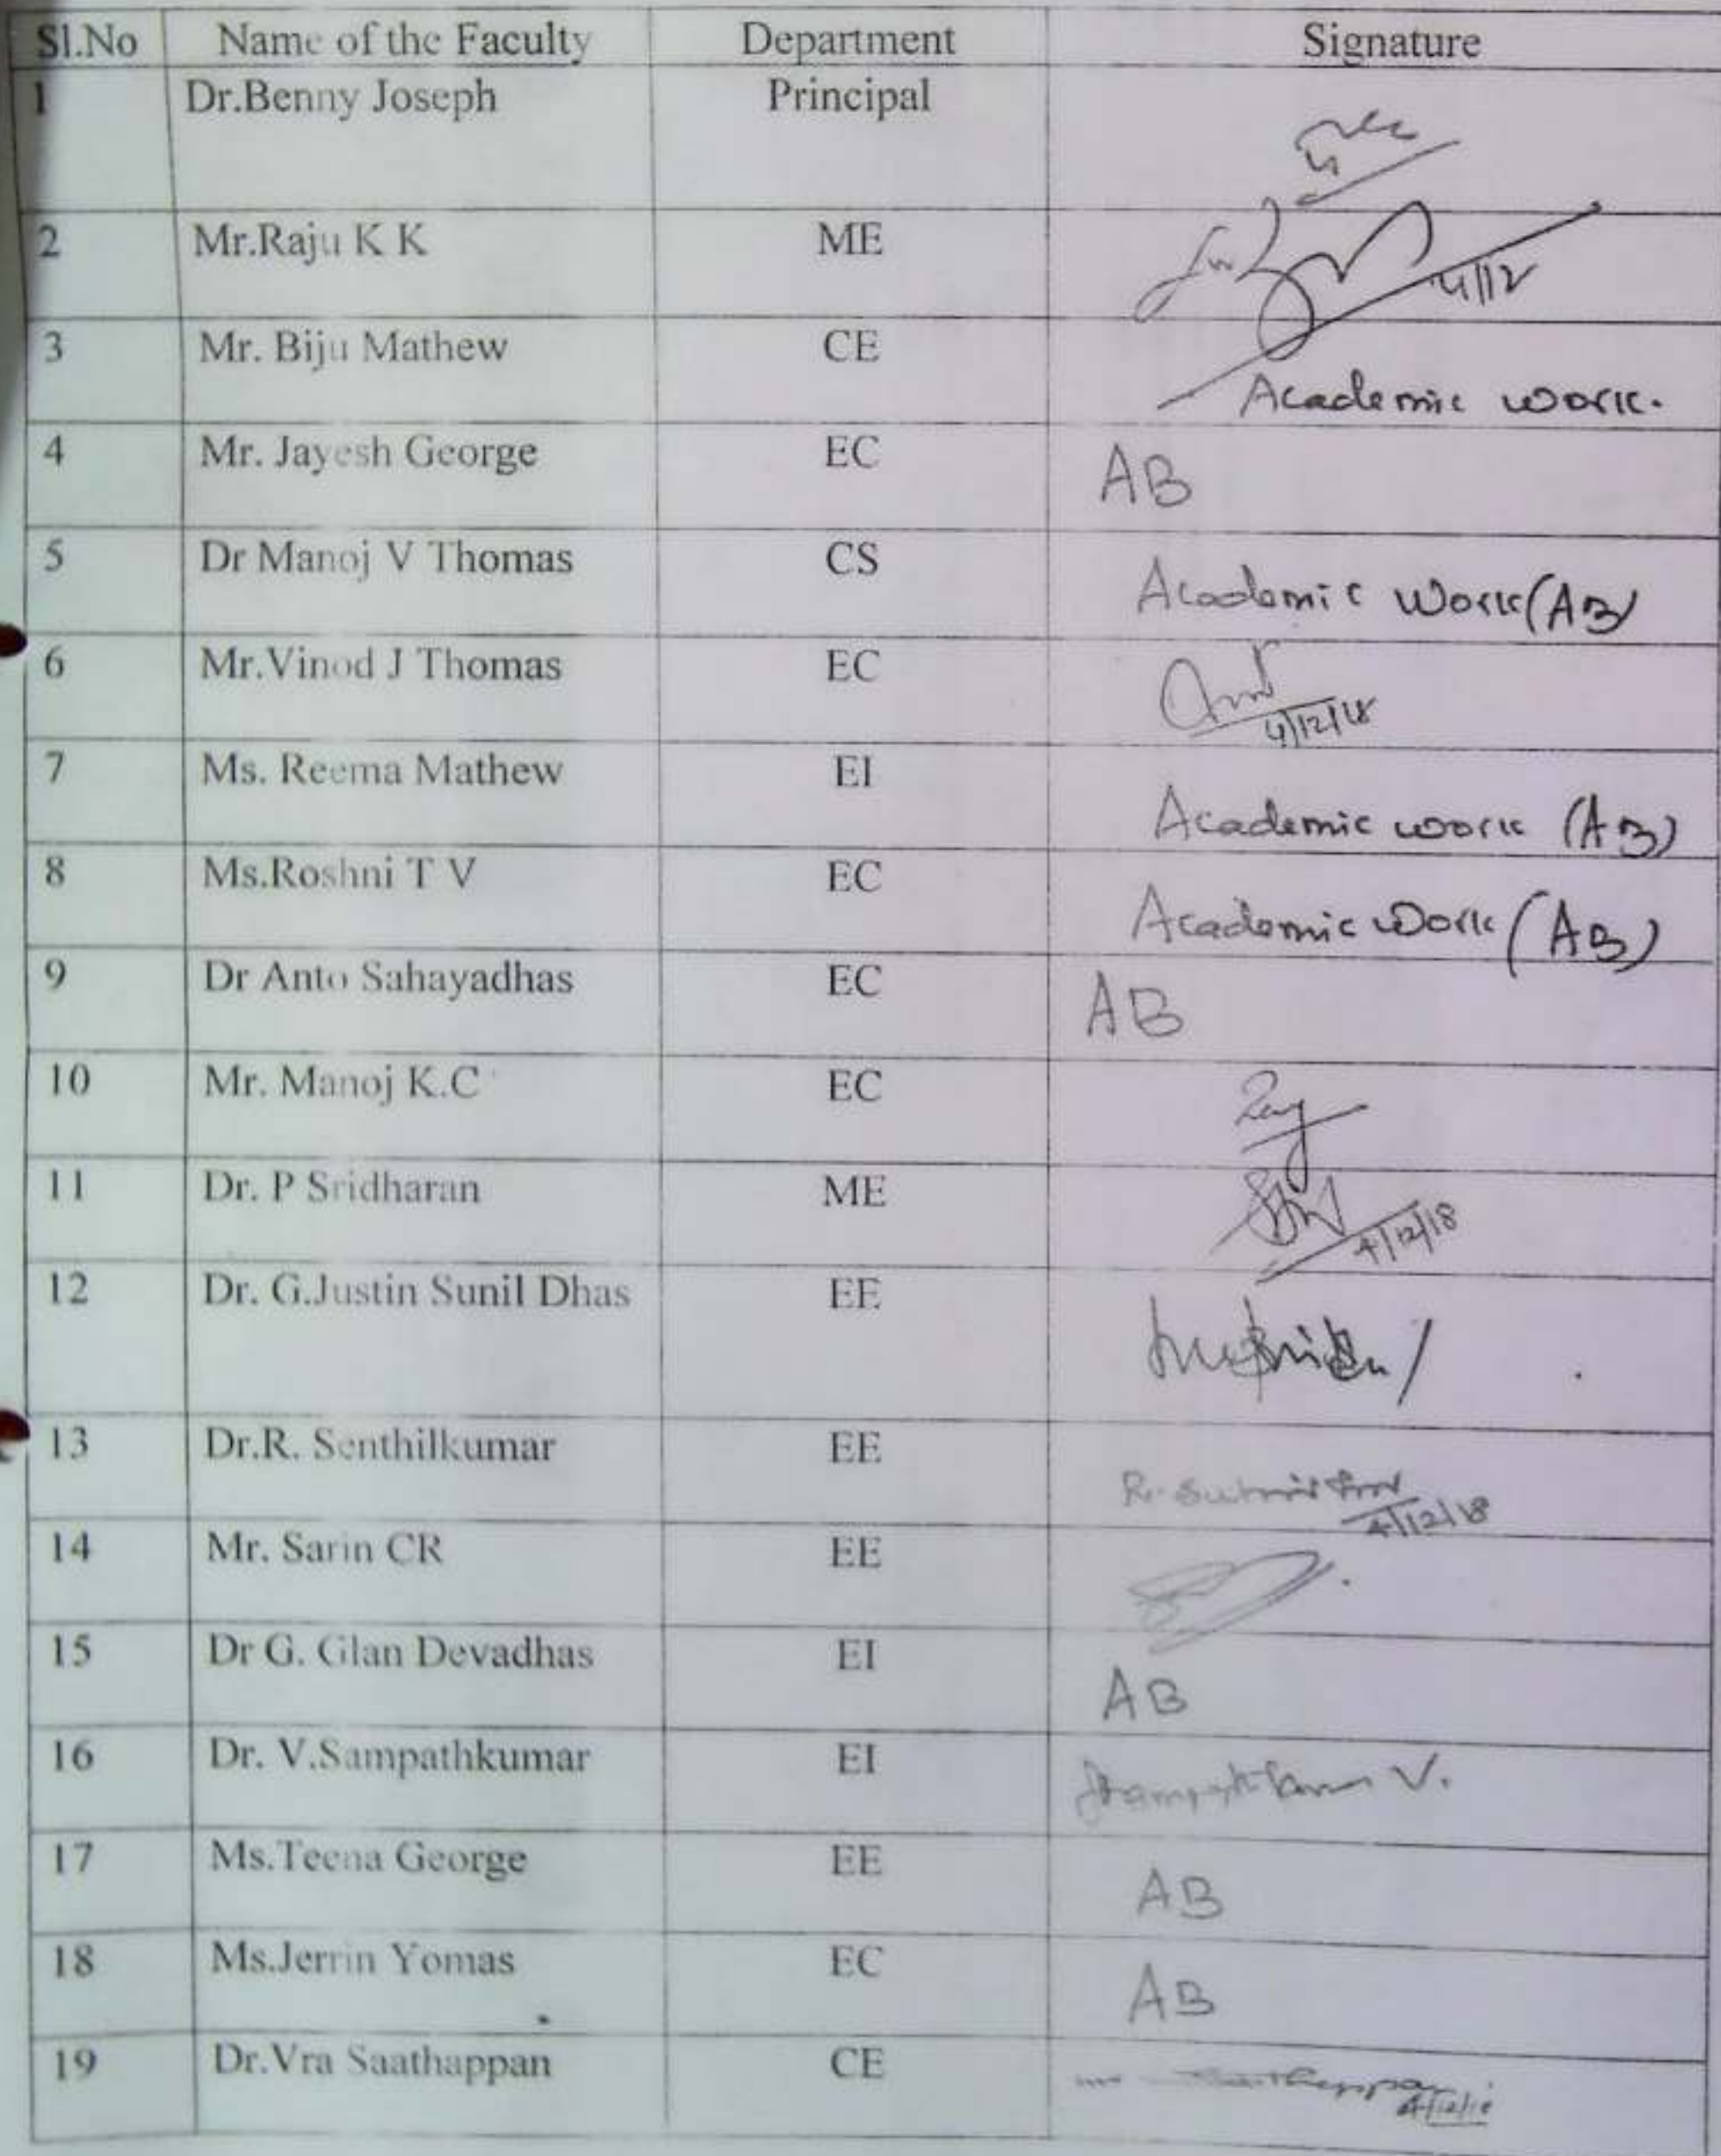 Sl.No Name of the Faculty Department Signature
1 Dr.Benny Joseph Principal
2 Mr.Raju K K ME 4/12
3 Mr. Biju Mathew CE Academic work.
4 Mr. Jayesh George EC AB
5 Dr Manoj V Thomas CS Academic Work (AB)
6 Mr.Vinod J Thomas EC 4/12/18
7 Ms. Reema Mathew EI Academic work (AB)
8 Ms.Roshni T V EC Academic Work (AB)
9 Dr Anto Sahayadhas EC AB
10 Mr. Manoj K.C EC
11 Dr. P Sridharan ME 4/12/18
12 Dr. G.Justin Sunil Dhas EE
13 Dr.R. Senthilkumar EE 4/12/18
14 Mr. Sarin CR EE
15 Dr G. Glan Devadhas EI AB
16 Dr. V.Sampathkumar EI V.
17 Ms.Teena George EE AB
18 Ms.Jerrin Yomas EC AB
19 Dr.Vra Saathappan CE 4/12/18